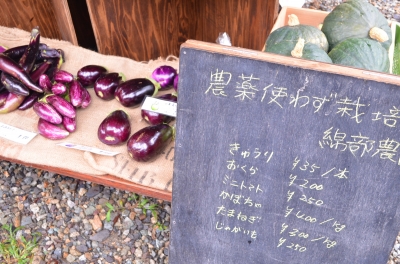 農薬使わず栽培
綿部農
きゅうり ¥35/本
おくら ¥200
ミニトマト ¥250
かぼちゃ ¥400/kg
たまねぎ ¥300/kg
じゃがいも ¥250